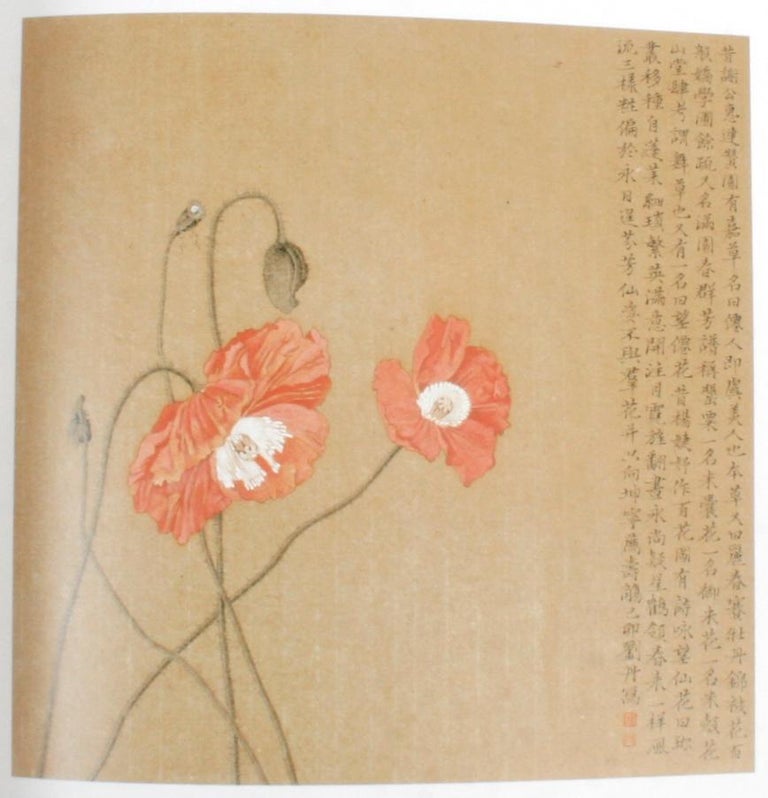 昔謝公惠連贊園有嘉草名曰僊人即虞美人也本草又曰麗春賽牡丹錦被花百
般嬌學圃餘疏又名滿園春群芳譜稱罌粟一名米囊花一名御米花一名米殼花
山堂肆考謂舞草也又有一名曰望僊花昔楊婕妤作百花圖有詩咏望仙花曰珎
叢移種自蓬萊細瑣繁英滿意開注目霓旌翻晝永尚疑星鶴領春来一樣風
流三樣粧偏於永日逞芬芳仙姿不與羣花并只向坤寧薦壽觴己卯劉丹寫